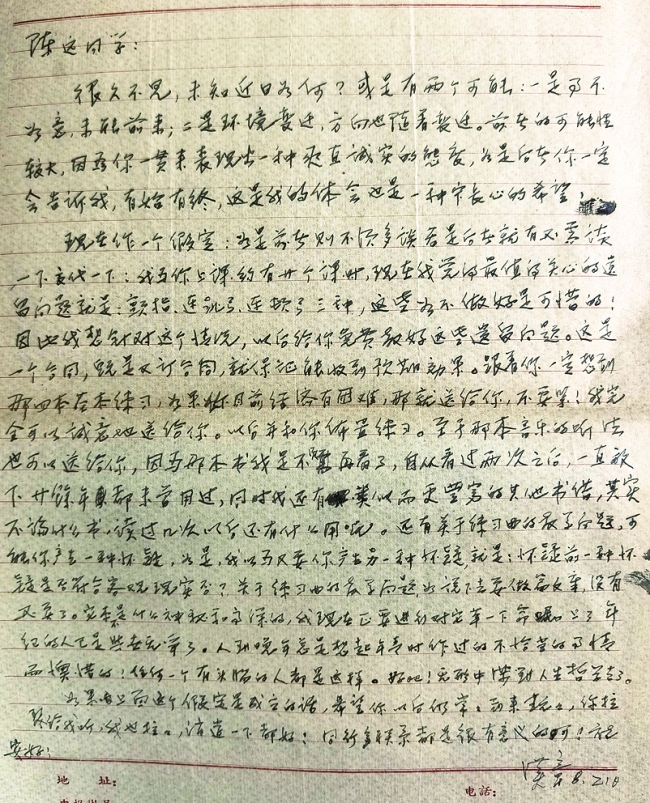 陈运同学:
很久不见,未知近日如何?或是有两个可能:一是事不
如意,未能前来;二是环境变迁,方向也随着变迁。前者的可能性
较大,因为你一贯来表现出一种爽直诚实的态度,如是后者你一定
会告诉我,有始有终,这是我的体会也是一种家长心的希望,
现在作一个假定:如是前者则不须多谈若是后者就有必要谈
一下交代一下:我与你上课约有廿个课时,现在我觉得最值得关心的遗
留问题就是:颤指、连跳弓、连顿弓三种,这些如不做好是可惜的!
因此我想针对这个情况,以后给你免费教好这些遗留问题。这是
一个合同,既是又订合同,就保证能收到预期效果。跟着你一定想到
那四本在本练习,如果你目前经济有困难,那就送给你,不要学!我完
全可以诚意地送给你。以后再和你作些练习。至于那本音乐的听法
也可以送给你,因为那本书我是不需再看了,自从看过两次之后,一直放
下廿余年都未曾用过,同时我还有类似而更丰富的其他书借,其实
不论什么书,读过几次以后还有什么用呢。还有关于练习曲的教学问题,可
能你产生一种怀疑,如是,我以为又要你产生另一种怀疑就是:怀疑前一种怀
疑是否符合客观现实否?关于练习曲的教学问题如说下去要做篇文章,没有
必要了。究竟是什么神秘和高深的,我现在正要进行对它算一下命 上了年
纪的人已是些无穷了。人到晚年总是想起年青时作过的不恰当的事情
而懊悔的!任何一个有头脑的人都是这样。好吧!无形中带到人生哲学去了。
如果以上面这个假定是成立的话,希望你以后仍常之前来玩之,你拉
琴给我听,我也拉,沟通一下都好!同行多联系都是很有意义的呵!祝
安好!
8.210
地 址:
电話: